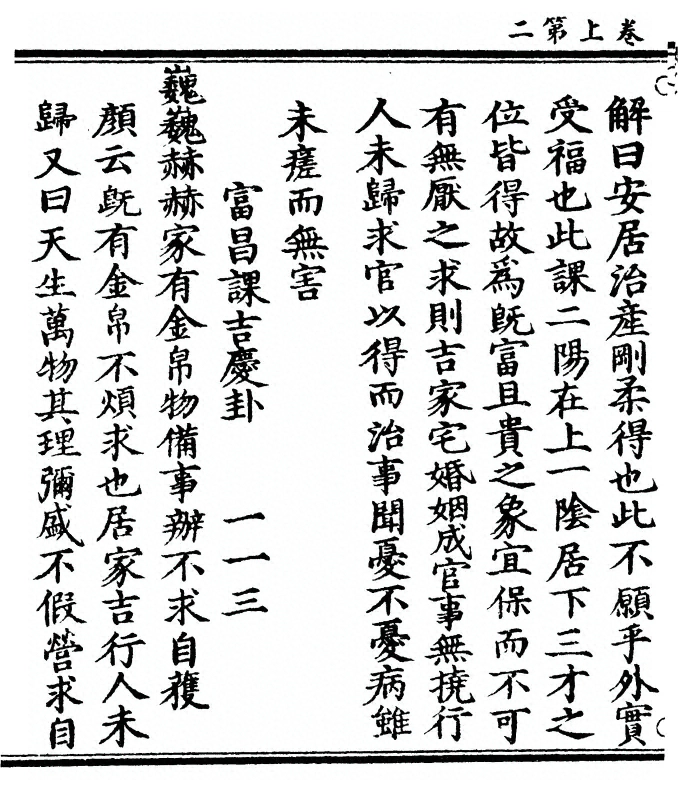 卷上第二
解曰安居治產剛柔得也此不願乎外實
受福也此課二陽在上一陰居下三才之
位皆得故爲旣富且貴之象宜保而不可
有無厭之求則吉家宅婚姻成官事無撓行
人未歸求官以得而治事聞憂不憂病雖
未瘥而無害
富昌課吉慶卦 一一三
巍巍赫赫家有金帛物備事辦不求自獲
顏云旣有金帛不煩求也居家吉行人未
歸又曰天生萬物其理彌盛不假營求自